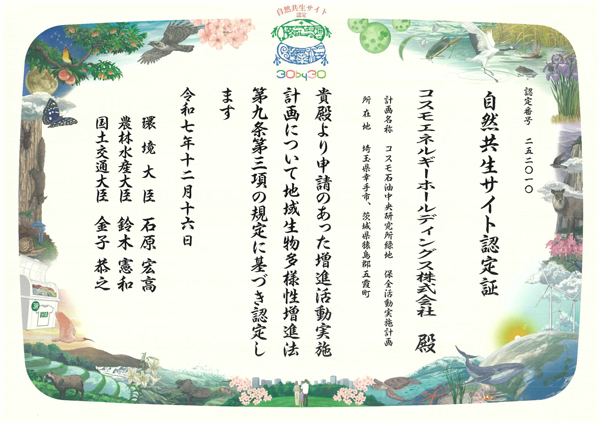 自然共生サイト
認定
30by30
認定番号 二五二〇一〇
自然共生サイト認定証
コスモエネルギーホールディングス株式会社 殿
計画名称 コスモ石油中央研究所緑地 保全活動実施計画
所在地 埼玉県幸手市、茨城県猿島郡五霞町
貴殿より申請のあった増進活動実施
計画について地域生物多様性増進法
第九条第三項の規定に基づき認定し
ます
令和七年十二月十六日
環境大臣 石原 宏高
農林水産大臣 鈴木 憲和
国土交通大臣 金子 恭之